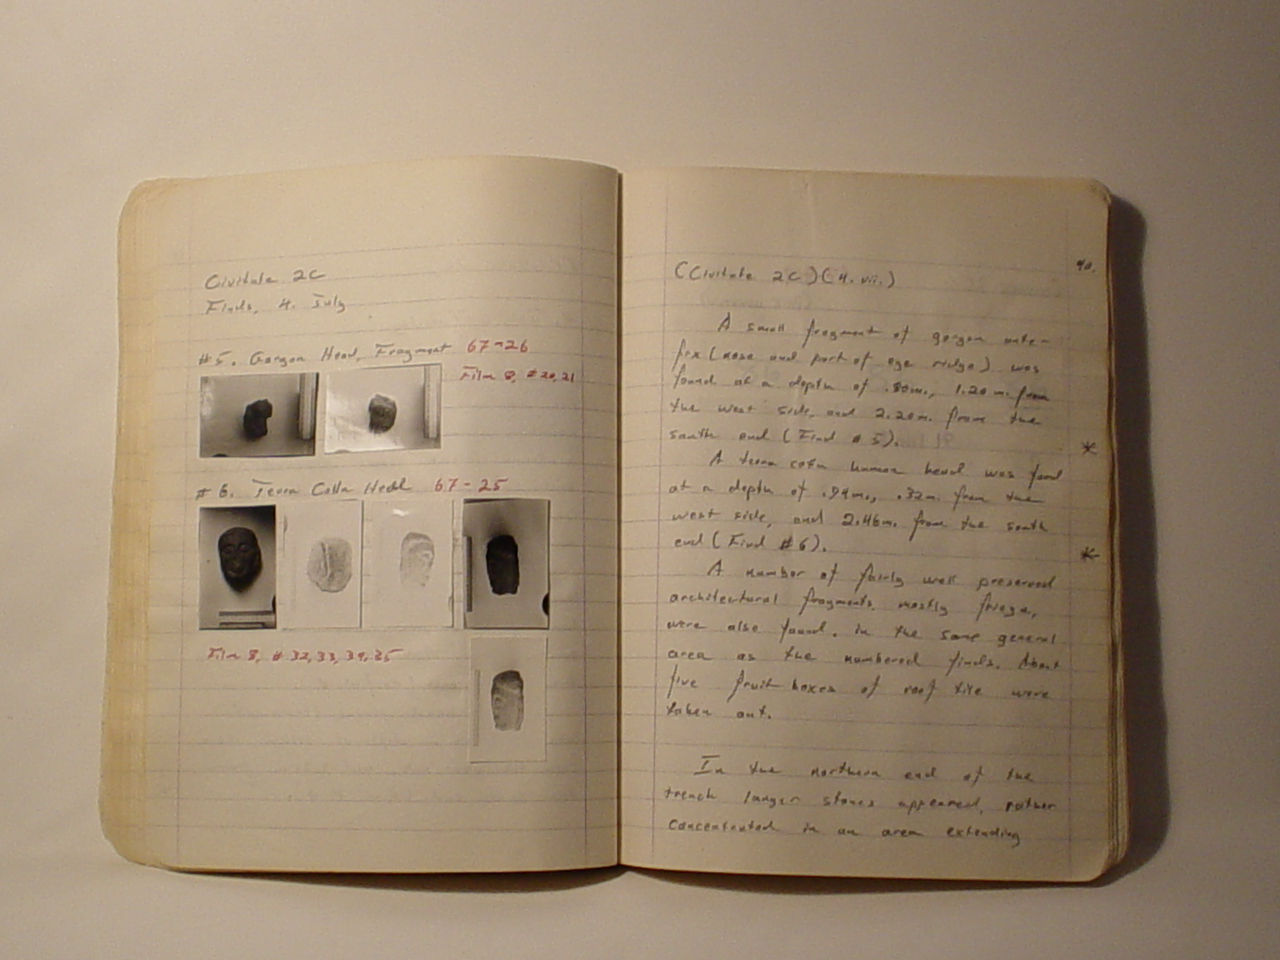 Civitate 2C
Finds, 4. July
#5. Gorgon Head, Fragment 67-26
Film 8, #20,21
#6. Terra Cotta Head 67-25
Film 8, #32,33,34,35
40.
(Civitate 2C)(4. vii.)
A small fragment of gorgon ante-
fix (nose and part of eye ridge) was
found at a depth of .80m., 1.20m. from
the west side, and 2.20m. from the
south end (Find #5).
*
A terra cotta human head was found
at a depth of .94m., .32m. from the
west side, and 2.46m. from the south
end (Find #6).
*
A number of fairly well preserved
architectural fragments, mostly frieze,
were also found, in the same general
area as the numbered finds. About
five fruit boxes of roof tile were
taken out.
In the northern end of the
trench larger stones appeared, rather
concentrated in an area extending